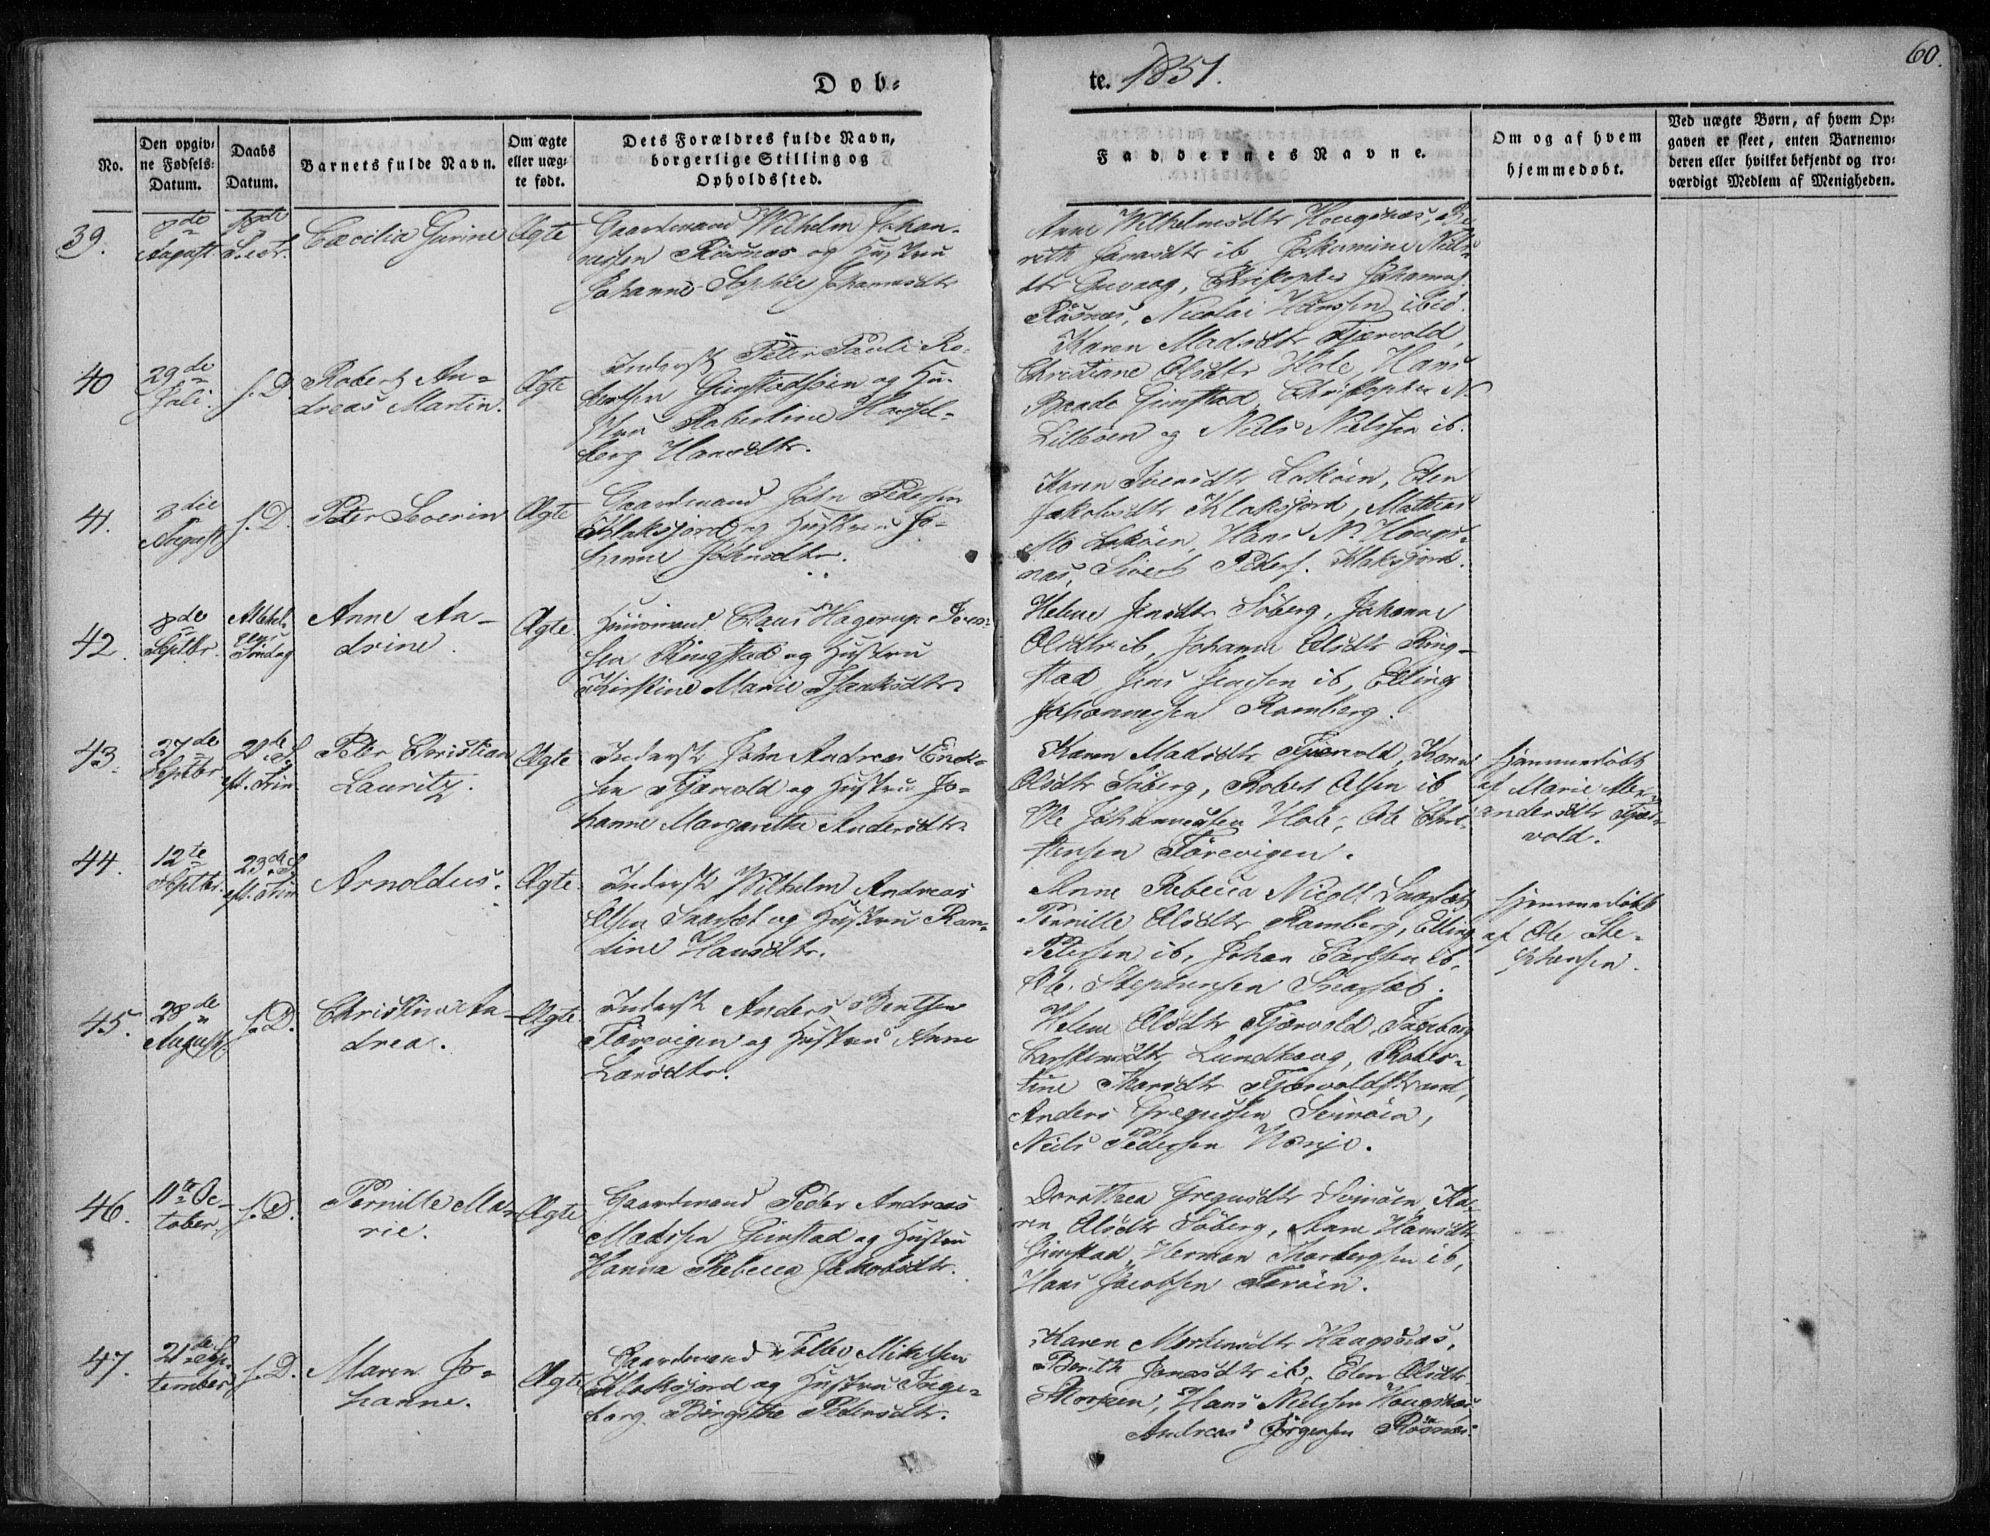 Døb-
te. 1851.
60.
No.
Den opgiv-
ne Fødsels-
Datum.
Daabs
Datum.
Barnets fulde Navn.
Om ægte
eller uæg-
te født.
Dets Forældres fulde Navn,
borgerlige Stilling og
Opholdssted.
Faddernes Navne.
Om og af hvem
hjemmedøbt.
Ved uægte Børn, af hvem Op-
gaven er skeet, enten Barnemo-
deren eller hvilket bekjendt og tro-
værdigt Medlem af Menigheden.
39.
8de
August
Cæcilia Gurine
Ægte
Gaardmand Wilhelm Johan-
nesen Rösnæs og Hustru
Johanna Sophie Johansdtr
Anne Wilhelmsdtr Hougsnæs, Be-
rith Jonasdtr ib, Jakomine Niels-
dtr Christopher Johannes.
Rösnæs, Nicolai Hansen ibid.
40
29de
Juli.
s. D.
Robert An-
dreas Martin.
Ægte
Inderst Peter Pauli Ro-
bertsen Gimstadsöen og Hu-
stru Robertine Hassel-
berg Hansdtr.
Karen Madsdtr Fjærvold,
Christiane Olsdtr Hole, Hans
Gimstad, Christopher N.
og Niels Nielssen ib.
41.
8die
August
s. D.
Peter Severin
Ægte
Gaardmand John Pedersen
Klaksjord og Hustru Jo-
hanne Johnsdtr.
Karen Iversdtr Elen
Jakobsdtr Klaksjord, Mathias
Mo Hans N. Hougs-
næs, Sivert Peders. Klaksjord.
42.
8de
Septbr.
Allehel-
gens
Söndag
Anne An-
drine.
Ægte
Huusmand Claus Hagerup
Ringstad og Hustru
Kirstine Marie Isaksdtr.
Helene Jensdtr Söberg, Johanna
Olsdtr ib, Johanna Olsdtr Ring-
stad Jens Jensen ib, Elling
Johannesen Ramberg.
43.
27de
Septbr.
20de S.
ft. Trin
Peter Christian
Lauritz.
Ægte
Inderst John Andreas Erik-
sen Fjærvold og Hustru Jo-
hanne Margaretha Andersdtr.
Karen Madsdtr Fjærvold, Karen
Olsdtr Söberg, Robert Olsen ib
Ole Johannesen Hole, Ole Chri-
stensen Förevigen.
hjemmedöbt
af Marie Alex-
andersdtr Fjær-
vold.
44.
12te
Septbr.
23de S.
ft. Trin
Arnoldus.
Ægte.
Inderst Wilhelm Andreas
Olsen Snarset og Hustru Ran-
dine Hansdtr.
Anne Rebecca Nicol. Snarset,
Pernille Olsdtr Ramberg, Elling
Petersen ib, Johan Carlsen ib,
Ole Stephensen Snarset.
hjemmedöbt
af Ole Ste-
phensen.
45.
28de
August
s. D.
Christine An-
drea.
Ægte.
Inderst Anders Bentsen
Förevigen og Hustru Anne
Larsdtr.
Helene Olsdtr Fjærvold, Ingeborg
Lundhoug, Rober-
tine Fjærvoldstrand,
Anders Gregussen
Niels Pedersen
46.
11te Oc-
tober
s. D.
Pernille Ma-
rie.
Ægte
Gaardmand Peder Andreas
Madssen Gimstad og Hustru
Hanna Rebecca Jakobsdtr.
Dorothea Gregusdtr Ka-
ren Olsdtr Söberg, Anne Hansdtr
Gimstad, Herman ib,
Hans Jacobsen
47.
21de Sep-
tember
s. D.
Maren Jo-
hanne.
Ægte
Gaardmand Tollev Mikelsen
Klaksjord og Hustru Inge-
borg Birgithe Pedersdtr.
Karen Mortensdtr Haugsnæs,
Berith Jonasdtr ib, Elen Olsdtr
Hans Nielsen Hougsnæs
Andreas Jörgensen Rösnæs.